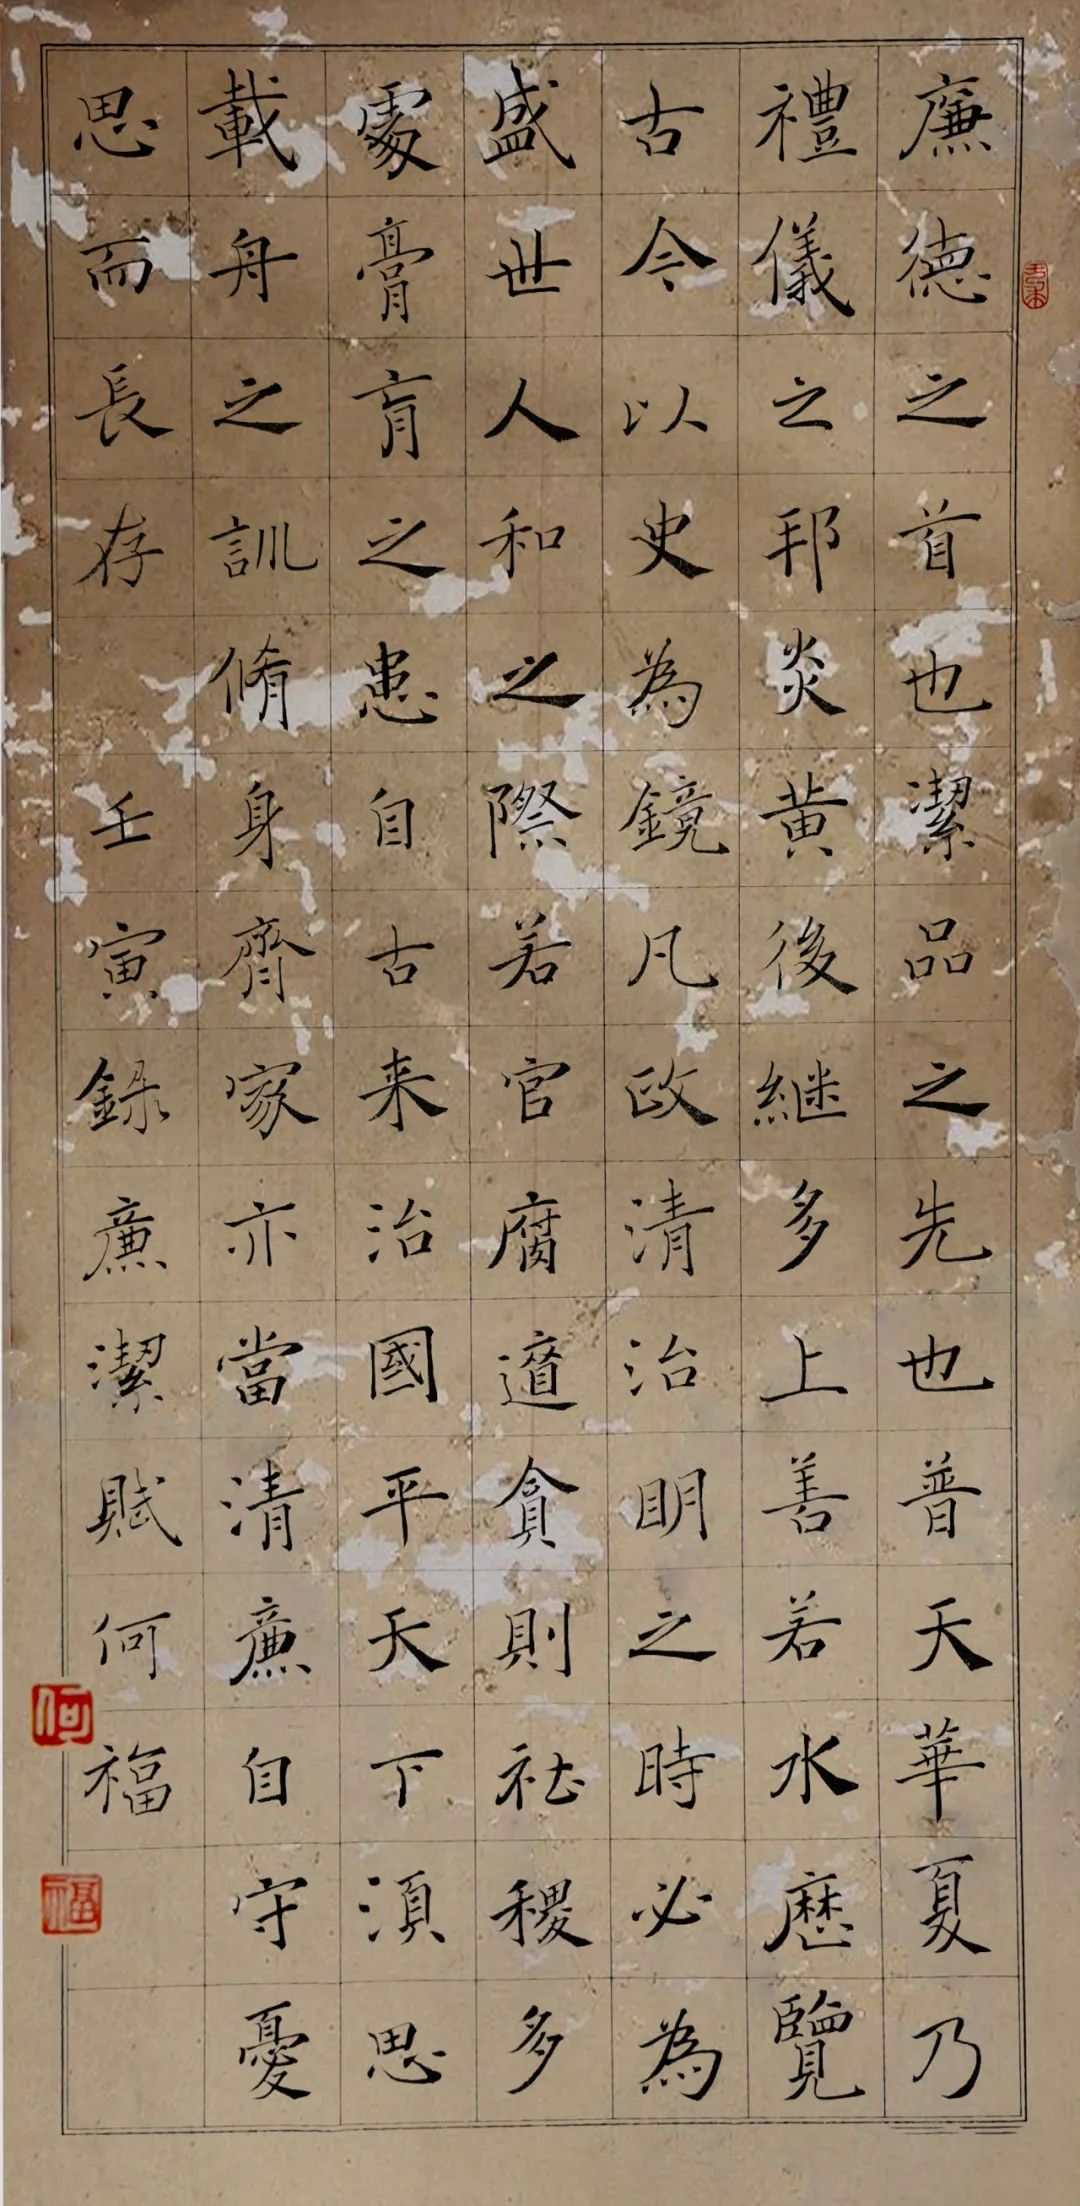 廉德之首也潔品之先也普天華夏乃
禮儀之邦炎黃後継多上善若水歷覽
古今以史為鏡凡政清治明之時必為
盛世人和之際若官腐貪則社稷多
處膏肓之患自古来治國平天下須思
載舟之訓脩身齊家亦當清廉自守憂
思而長存 壬寅錄廉潔賦何福
何
福